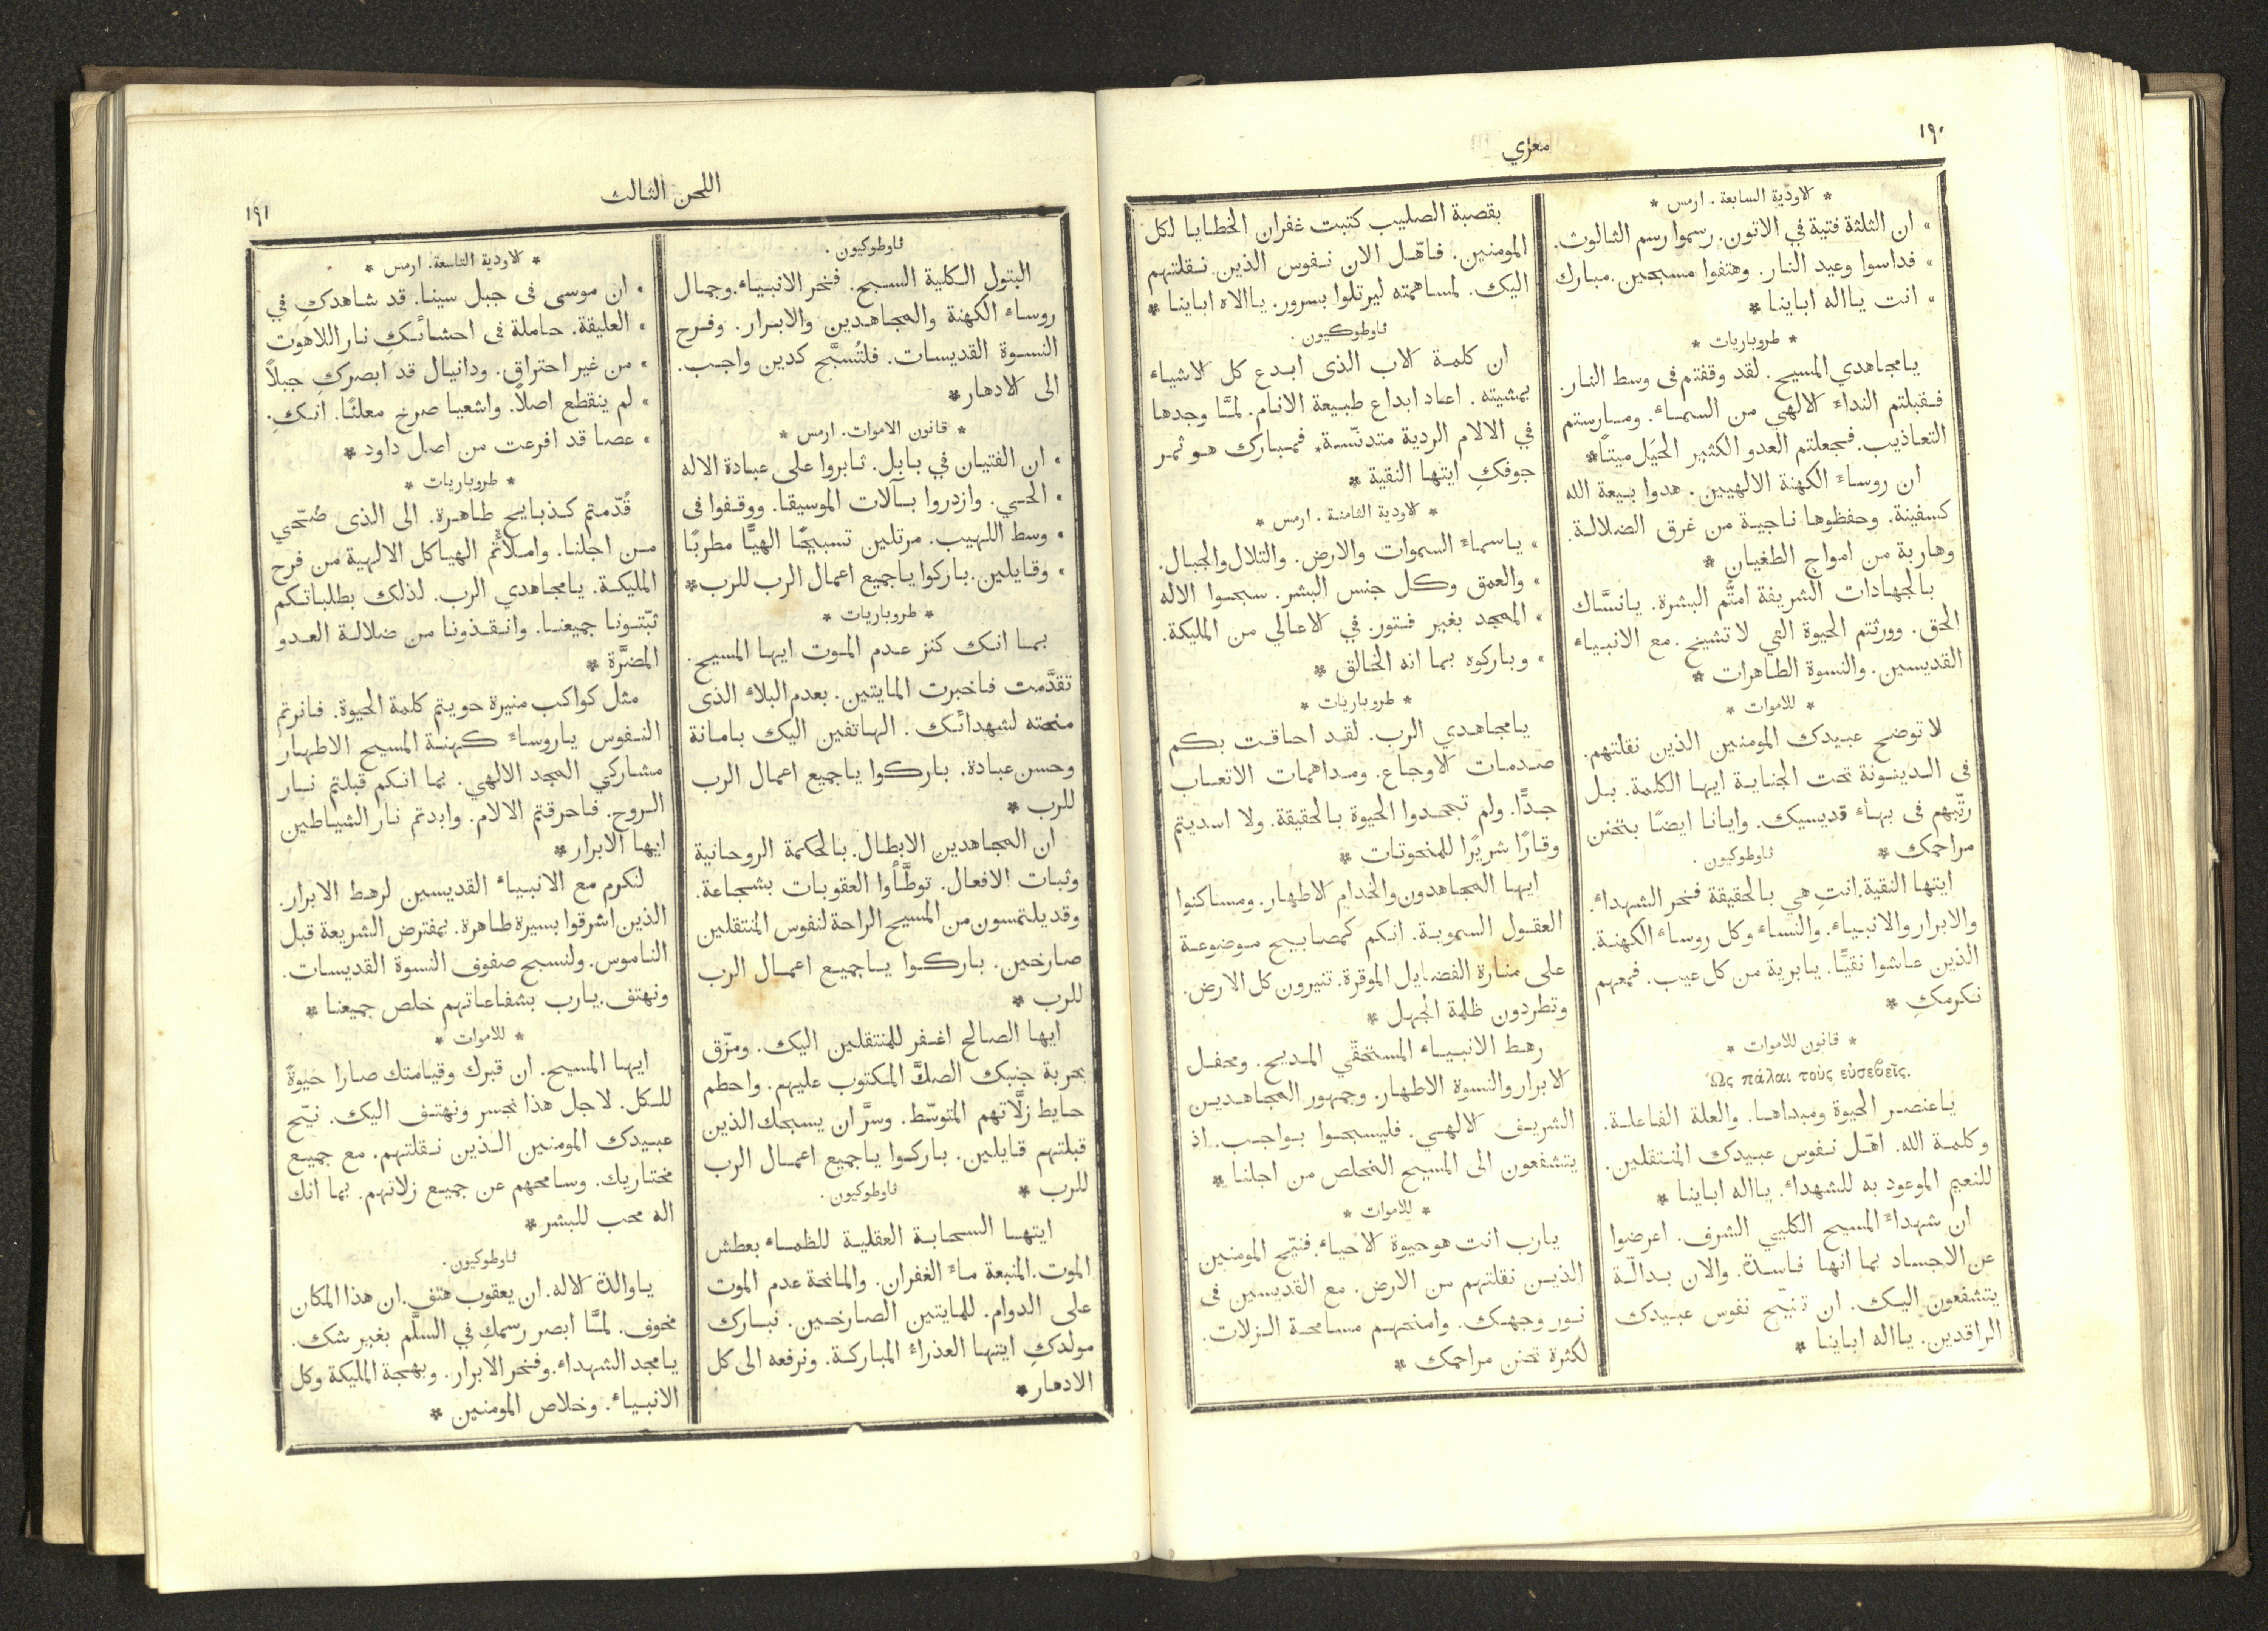 ١٩٠
معزي
* الاودية السابعة . ارمس *
» ان الثلثة فتية في الاتون. رسموا رسم الثالوث.
» فداسوا وعيد النار. وهتفوا مسبحين. مبارك
» انت يااله اباينا *
* طروباريات *
يامجاهدي المسيح. لقد وقفتم فى وسط النار.
فقبلتم النداء الالهي من السماء. ومارستم
التعاذيب. فجعلتم العدو الكثير الحيَل ميتًا*
ان روساء الكهنة الالهيين. هدوا بيعة الله
كسفينة. وحفظوها ناجية من غرق الضلالة.
وهاربة من امواج الطغيان *
بالجهادات الشريفة امتُّم البشرة. يانسَّاك
الحق. وورثتم الحيوة التي لا تشيخ. مع الانبياء
القديسين. والنسوة الطاهرات *
* للاموات *
لا توضح عبيدك المومنين الذين نقلتهم.
فى الدينونة تحت الجناية ايها الكلمة. بل
رتّبهم فى بهاء قديسيك. وايانا ايضًا بتحنن
مراحمك *
ثاوطوكيون .
ايتها النقية. انتِ هي بالحقيقة فخر الشهداء.
والابرار والانبياء. والنساء وكل روساء الكهنة.
الذين عاشوا نقيًّا. يابرية من كل عيب. فمعهم
نكرمكِ *
* قانون للاموات *
Ὡς πάλαι τοὺς εὐσεβεῖς.
ياعنصر الحيوة ومبداها. والعلة الفاعلة.
وكلمة الله. اهّل نفوس عبيدك المنتقلين.
للنعيم الموعود به للشهداء. يااله اباينا *
ان شهداء المسيح الكليي الشرف. اعرضوا
عن الاجساد بما انها فاسدة. والان بدالّة
يتشفعون اليك. ان تنيّح نفوس عبيدك
الراقدين. يااله اباينا *
بقصبة الصليب كتبت غفران الخطايا لكل
المومنين. فاهّل الان نفوس الذين نقلتهم
اليك. لمساهمته ليرتلوا بسرور. ياالاه اباينا *
ثاوطوكيون .
ان كلمة الاب الذى ابدع كل الاشياء
بمشيته . اعاد ابداع طبيعة الانام. لمَّا وجدها
في الالام الردية متدنّسة. فمبارك هو ثمر
جوفكِ ايتها النقية *
* الاودية الثامنة . ارمس *
» ياسماء السموات والارض. والتلال والجبال.
» والعمق وكل جنس البشر. سبحوا الاله
» الممجد بغير فتور. في الاعالي من المليكة.
» وباركوه بما انه الخالق *
* طروباريات *
يامجاهدي الرب. لقد احاقت بكم
صدمات الاوجاع. ومداهمات الاتعاب
جدًّا. ولم تجحدوا الحيوة بالحقيقة. ولا اسديتم
وقارًا شريرًا للمنحوتات *
ايها المجاهدون والخدام الاطهار. ومساكنوا
العقول السموية. انكم كمصابيح موضوعة
على منارة الفضايل الموقرة. تنيرون كل الارض.
وتطردون ظلمة الجهل *
رهط الانبياء المستحقّي المديح. ومحفل
الابرار والنسوة الاطهار. وجمهور المجاهدين
الشريف الالهي. فليسبحوا بواجب. اذ
يتشفعون الى المسيح المخلص من اجلنا *
* للاموات *
يارب انت هو حيوة الاحياء. فنيّح المومنين
الذين نقلتهم من الارض. مع القديسين فى
نور وجهك. وامنحهم مسامحة الزلات.
لكثرة تحنن مراحمك *
اللحن الثالث
١٩١
ثاوطوكيون .
البتول الكلية السبح. فخر الانبياء. وجمال
روساء الكهنة والمجاهدين والابرار. وفرح
النسوة القديسات. فلتُسبَّح كدين واجب.
الى الادهار*
* قانون الاموات. ارمس *
» ان الفتيان في بابل. ثابروا على عبادة الاله
» الحي. وازدروا بآلات الموسيقا. ووقفوا فى
» وسط اللهيب. مرتلين تسبيحًا الهيًّا مطربًا
» وقايلين. باركوا ياجميع اعمال الرب للرب*
* طروباريات *
بما انك كنز عدم الموت ايها المسيح.
تقدَّمت فاخبرت المايتين. بعدم البلاء الذى
منحته لشهدائك. الهاتفين اليك بامانة
وحسن عبادة. باركوا ياجميع اعمال الرب
للرب *
ان المجاهدين الابطال. بالحكمة الروحانية
وثبات الافعال. توطَّأوا العقوبات بشجاعة.
وقد يلتمسون من المسيح الراحة لنفوس المنتقلين
صارخين. باركوا ياجميع اعمال الرب
للرب *
ايها الصالح اغفر للمنتقلين اليك. ومزّق
بحربة جنبك الصكَّ المكتوب عليهم. واحطم
حايط زلَّاتهم المتوسّط. وسرَّ ان يسبحك الذين
قبلتهم قايلين. باركوا ياجميع اعمال الرب
للرب *
ثاوطوكيون .
ايتها السحابة العقلية للظماء بعطش
الموت. المنبعة ماء الغفران. والمانحة عدم الموت
على الدوام. للمايتين الصارخين. نبارك
مولدكِ ايتها العذراء المباركة. ونرفعه الى كل
الادهار*
* الاودية التاسعة. ارمس *
» ان موسى فى جبل سينا. قد شاهدكِ في
» العليقة. حاملة فى احشائكِ نار اللاهوت
» من غير احتراق. ودانيال قد ابصركِ جبلًا
» لم ينقطع اصلًا. واشعيا صرخ معلنًا. انكِ.
» عصا قد افرعت من اصل داود *
* طروباريات *
قُدّمتم كذبايح طاهرة. الى الذى ضُحّي
من اجلنا. واملأتُم الهياكل الالهية من فرح
المليكة. يامجاهدي الرب. لذلك بطلباتكم
ثبّتونا جميعنا. وانقذونا من ضلالة العدو
المضرَّة *
مثل كواكب منيرة حويتم كلمة الحيوة. فانرتم
النفوس ياروساء كهنة المسيح الاطهار
مشاركي المجد الالهي. بما انكم قبلتم نار
الروح. فاحرقتم الالام. وابدتم نار الشياطين
ايها الابرار*
لنكرم مع الانبياء القديسين لرهط الابرار.
الذين اشرقوا بسيرة طاهرة. بمفترض الشريعة قبل
الناموس. ولنسبح صفوف النسوة القديسات.
ونهتف. يارب بشفاعاتهم خلص جميعنا *
* للاموات *
ايها المسيح. ان قبرك وقيامتك صارا حيوةً
للكل. لاجل هذا نجسر ونهتف اليك. نيّح
عبيدك المومنين الذين نقلتهم. مع جميع
مختاريك. وسامحهم عن جميع زلاتهم. بما انك
اله محب للبشر*
ثاوطوكيون .
ياوالدة الاله. ان يعقوب هتف. ان هذا المكان
مخوف. لمَّا ابصر رسمكِ في السلَّم بغير شك.
يامجد الشهداء. وفخر الابرار. وبهجة المليكة وكل
الانبياء. وخلاص المومنين *